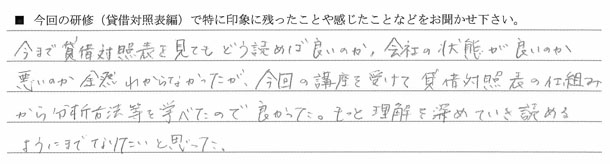 ■ 今回の研修（貸借対照表編）で特に印象に残ったことや感じたことなどをお聞かせ下さい。
今まで貸借対照表を見てもどう読めば良いのか、会社の状態が良いのか
悪いのか全然わからなかったが、今回の講座を受けて貸借対照表の仕組み
から分析方法等を学べたので良かった。もっと理解を深めていき読める
ようにまでなりたいと思った。